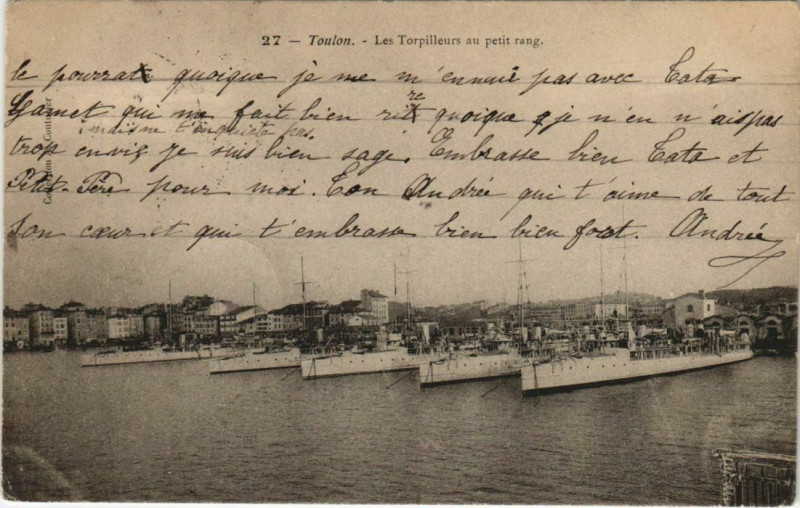 27 — Toulon. - Les Torpilleurs au petit rang.
le pourrat quoique je me m'ennuie pas avec Tata
Gamet qui me fait bien rire quoique je n'en n'ais pas
mais ne t'inquiete pas
trop envie je suis bien sage. Embrasse bien Tata et
Petit-Père pour moi. Ton Andrée qui t'aime de tout
son cœur et qui t'embrasse bien bien fort. Andrée